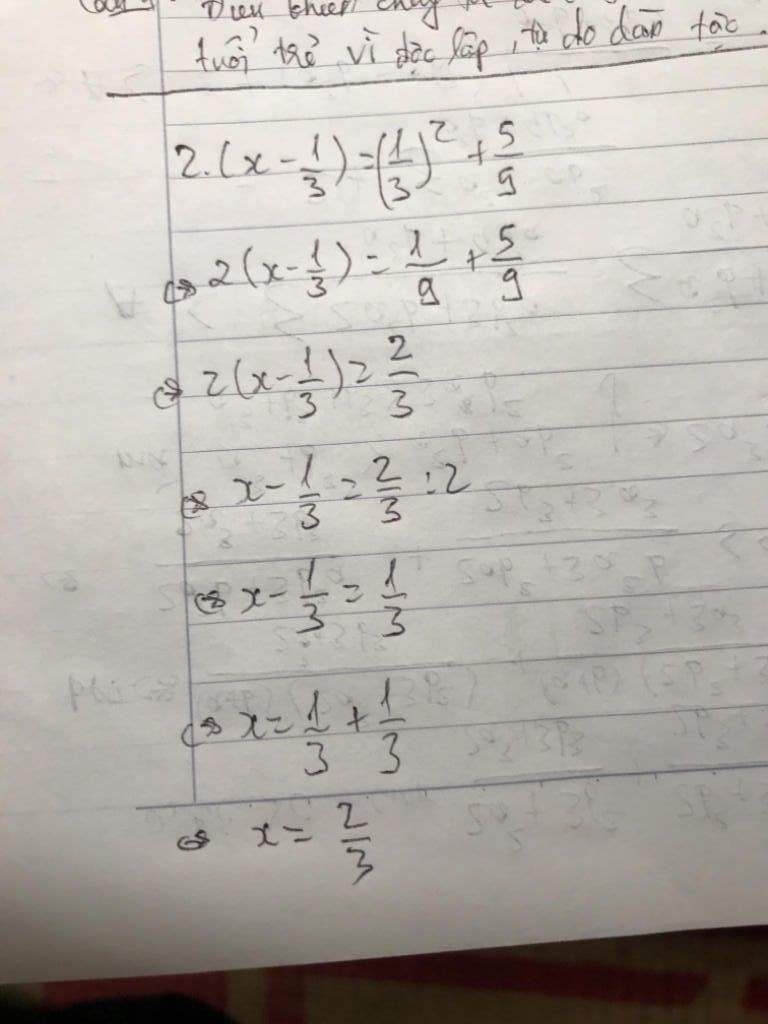 tuổi trẻ vì độc lập, tự do dân tộc.
2.(x - 1/3) = (1/3)² + 5/9
⇔ 2(x - 1/3) = 1/9 + 5/9
⇔ 2(x - 1/3) = 2/3
⇔ x - 1/3 = 2/3 : 2
⇔ x - 1/3 = 1/3
⇔ x = 1/3 + 1/3
⇔ x = 2/3